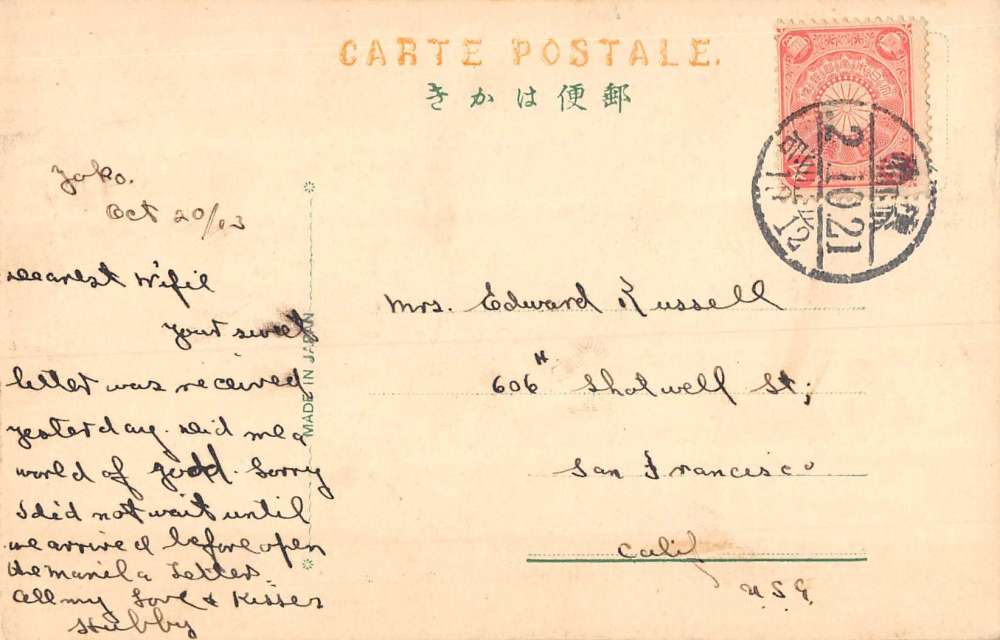 CARTE POSTALE.
きかは便郵
Yoko.
Oct 20/13
Dearest Wifie
Your sweet
letter was received
yesterday. did me a
world of good. Sorry
I did not wait until
we arrived before open
the manila Letter.
All my Love & Kisses
Hubby
MADE IN JAPAN
Mrs. Edward Russell
606 Shotwell St;
San Francisco
Calif
U.S.A.
2.10.21